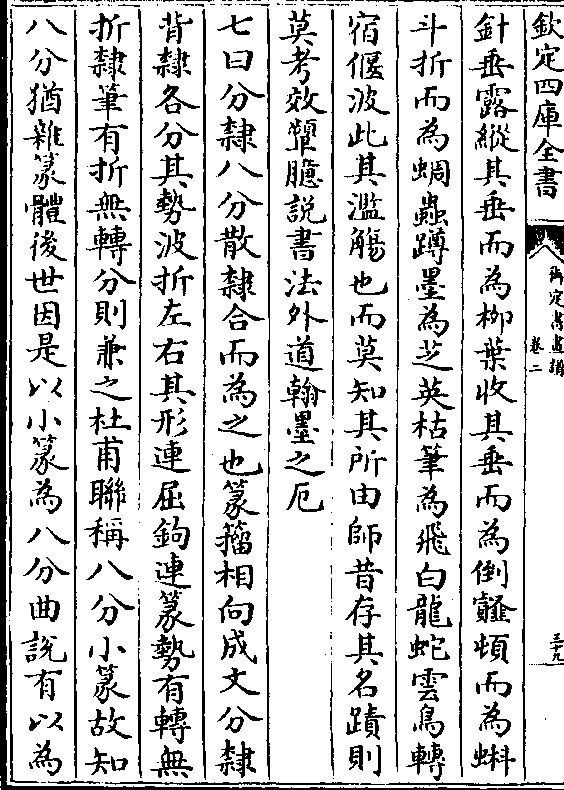 欽定四庫全書
御定書畫譜
卷二
三十九
針垂露縱其垂而為柳葉收其垂而為倒薤頓而為蝌
斗折而為蜩蟲蹲墨為芝英枯筆為飛白龍蛇雲鳥轉
宿偃波此其濫觴也而莫知其所由師昔存其名蹟則
莫考效顰臆說書法外道翰墨之厄
七曰分隸八分散隸合而為之也篆籀相向成文分隸
背隸各分其勢波折左右其形連屈鉤連篆勢有轉無
折隸筆有折無轉分則兼之杜甫聯稱八分小篆故知
八分猶雜篆體後世因是以小篆為八分曲說有以為